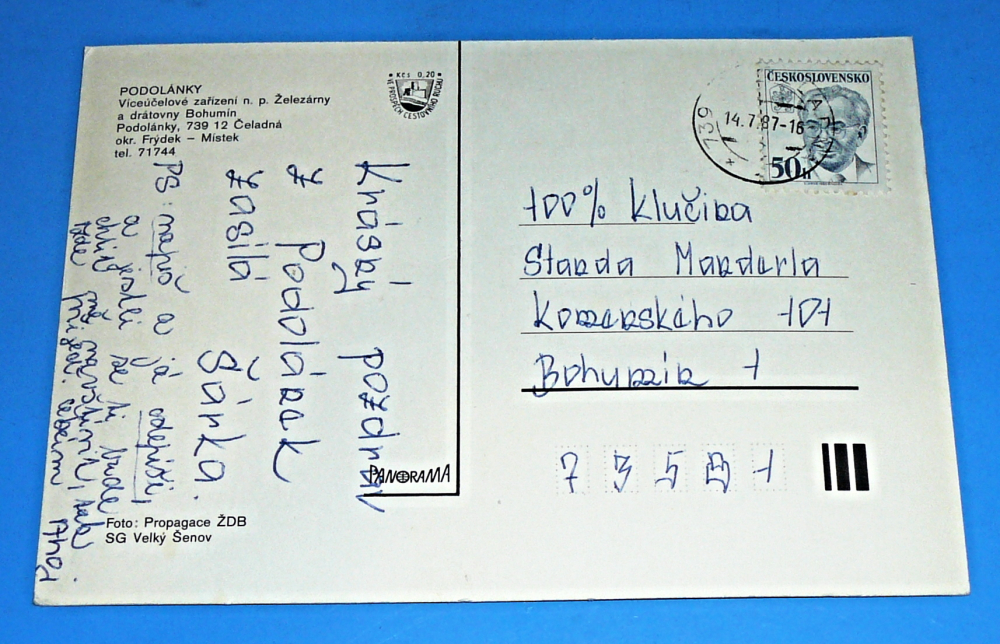 PODOLÁNKY
Víceúčelové zařízení n. p. Železárny
a drátovny Bohumín
Podolánky, 739 12 Čeladná
okr. Frýdek – Místek
tel. 71744
Kčs 0,20
VE PROSPĚCH CESTOVNÍHO RUCHU
Krásný pozdrav
z Podolánek
zasílá Šárka.
PS: napiš a já
a
Ahoj
PANORAMA
Foto: Propagace ŽDB
SG Velký Šenov
ČESKOSLOVENSKO
50h
739
14.7.87-16
100% klučina
Standa Manderla
Komenského 101
Bohumín 1
735 81